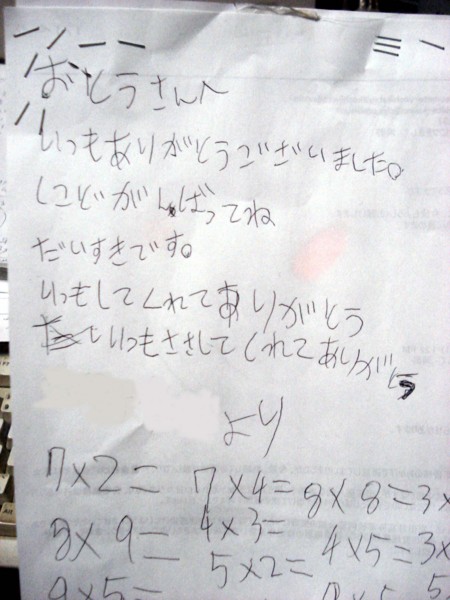 おとうさんへ
いつもありがとうございました。
しごどがんばってね
だいすきです。
いつもしてくれてありがとう
といつもささしてくれてありがとう
より
7×2= 7×4= 8×8= 3×
8×9= 4×3= 4×5= 3×
5×2=
9×5=